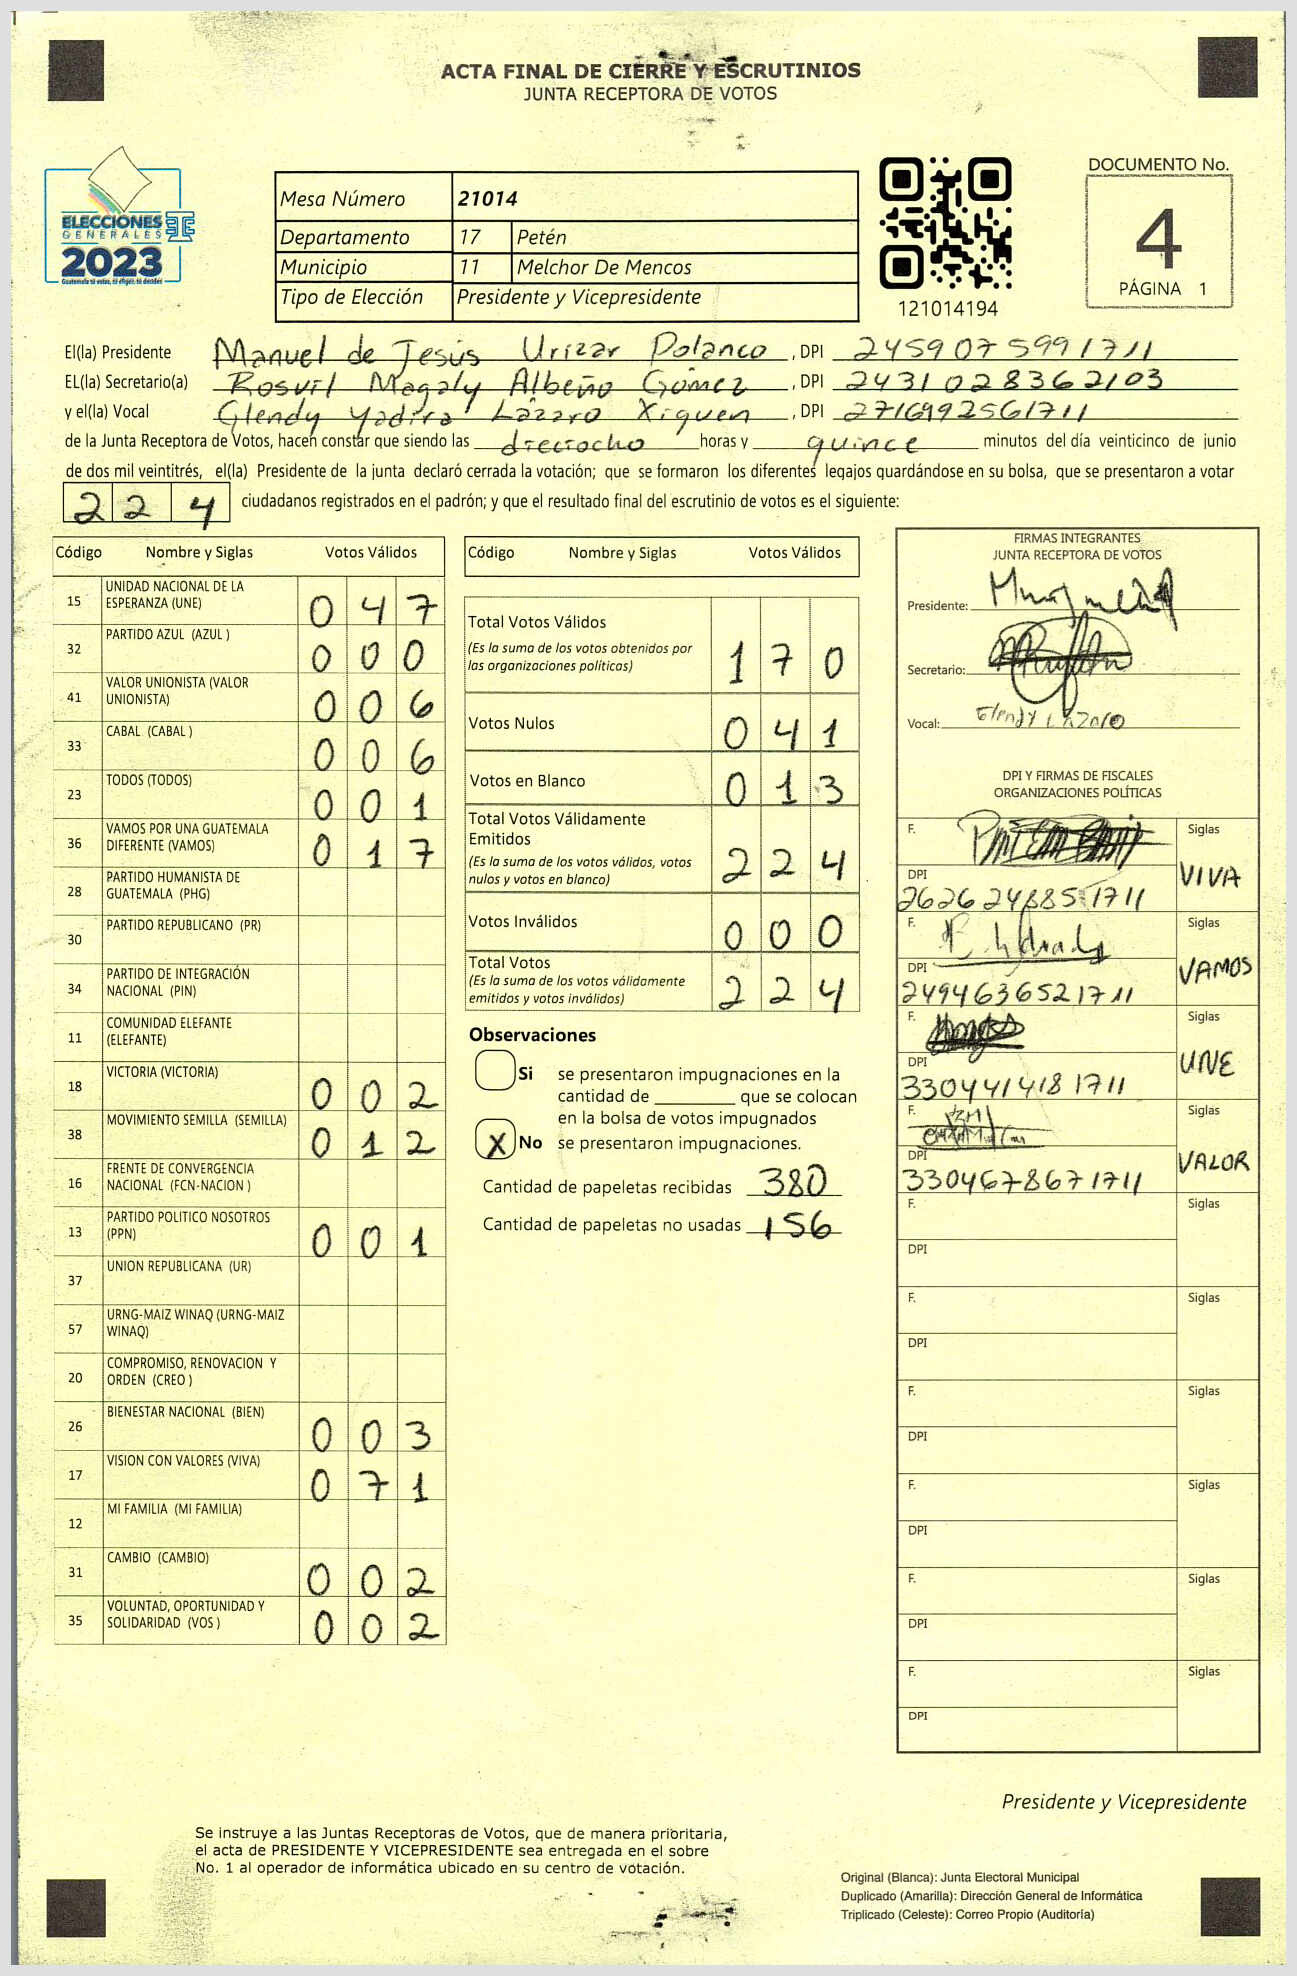 ACTA FINAL DE CIERRE Y ESCRUTINIOS
JUNTA RECEPTORA DE VOTOS
ELECCIONES
GENERALES
2023
Guatemala tú votas, tú eliges, tú decides
Mesa Número 21014
Departamento 17 Petén
Municipio 11 Melchor De Mencos
Tipo de Elección Presidente y Vicepresidente
121014194
DOCUMENTO No.
4
PÁGINA 1
El(la) Presidente Manuel de Jesús Urizar Polanco, DPI 2459075991711
EL(la) Secretario(a) Rosvil Magaly Albeño Gómez, DPI 2431028362103
y el(la) Vocal Glendy Yadira Lázaro Xiquen, DPI 2716992561711
de la Junta Receptora de Votos, hacen constar que siendo las dieciocho horas y quince minutos del día veinticinco de junio
de dos mil veintitrés, el(la) Presidente de la junta declaró cerrada la votación; que se formaron los diferentes legajos quardándose en su bolsa, que se presentaron a votar
224 ciudadanos registrados en el padrón; y que el resultado final del escrutinio de votos es el siguiente:
Código Nombre y Siglas Votos Válidos
15 UNIDAD NACIONAL DE LA ESPERANZA (UNE) 0 4 7
32 PARTIDO AZUL (AZUL ) 0 0 0
41 VALOR UNIONISTA (VALOR UNIONISTA) 0 0 6
33 CABAL (CABAL ) 0 0 6
23 TODOS (TODOS) 0 0 1
36 VAMOS POR UNA GUATEMALA DIFERENTE (VAMOS) 0 1 7
28 PARTIDO HUMANISTA DE GUATEMALA (PHG)
30 PARTIDO REPUBLICANO (PR)
34 PARTIDO DE INTEGRACIÓN NACIONAL (PIN)
11 COMUNIDAD ELEFANTE (ELEFANTE)
18 VICTORIA (VICTORIA) 0 0 2
38 MOVIMIENTO SEMILLA (SEMILLA) 0 1 2
16 FRENTE DE CONVERGENCIA NACIONAL (FCN-NACION )
13 PARTIDO POLITICO NOSOTROS (PPN) 0 0 1
37 UNION REPUBLICANA (UR)
57 URNG-MAIZ WINAQ (URNG-MAIZ WINAQ)
20 COMPROMISO, RENOVACION Y ORDEN (CREO )
26 BIENESTAR NACIONAL (BIEN) 0 0 3
17 VISION CON VALORES (VIVA) 0 7 1
12 MI FAMILIA (MI FAMILIA)
31 CAMBIO (CAMBIO) 0 0 2
35 VOLUNTAD, OPORTUNIDAD Y SOLIDARIDAD (VOS ) 0 0 2
Código Nombre y Siglas Votos Válidos
Total Votos Válidos 1 7 0
(Es la suma de los votos obtenidos por
las organizaciones políticas)
Votos Nulos 0 4 1
Votos en Blanco 0 1 3
Total Votos Válidamente
Emitidos 2 2 4
(Es la suma de los votos válidos, votos
nulos y votos en blanco)
Votos Inválidos 0 0 0
Total Votos 2 2 4
(Es la suma de los votos válidamente
emitidos y votos inválidos)
Observaciones
Si se presentaron impugnaciones en la
cantidad de ________ que se colocan
en la bolsa de votos impugnados
X No se presentaron impugnaciones.
Cantidad de papeletas recibidas 380
Cantidad de papeletas no usadas 156
FIRMAS INTEGRANTES
JUNTA RECEPTORA DE VOTOS
Presidente:
Secretario:
Vocal: Glendy Lázaro
DPI Y FIRMAS DE FISCALES
ORGANIZACIONES POLÍTICAS
F. Siglas
DPI VIVA
2626248851711
F. Siglas
DPI VAMOS
2494636521711
F. Siglas
DPI UNE
3304414181711
F. Siglas
DPI VALOR
3304678671711
F. Siglas
DPI
F. Siglas
DPI
F. Siglas
DPI
F. Siglas
DPI
F. Siglas
DPI
F. Siglas
DPI
Presidente y Vicepresidente
Se instruye a las Juntas Receptoras de Votos, que de manera prioritaria,
el acta de PRESIDENTE Y VICEPRESIDENTE sea entregada en el sobre
No. 1 al operador de informática ubicado en su centro de votación.
Original (Blanca): Junta Electoral Municipal
Duplicado (Amarilla): Dirección General de Informática
Triplicado (Celeste): Correo Propio (Auditoría)